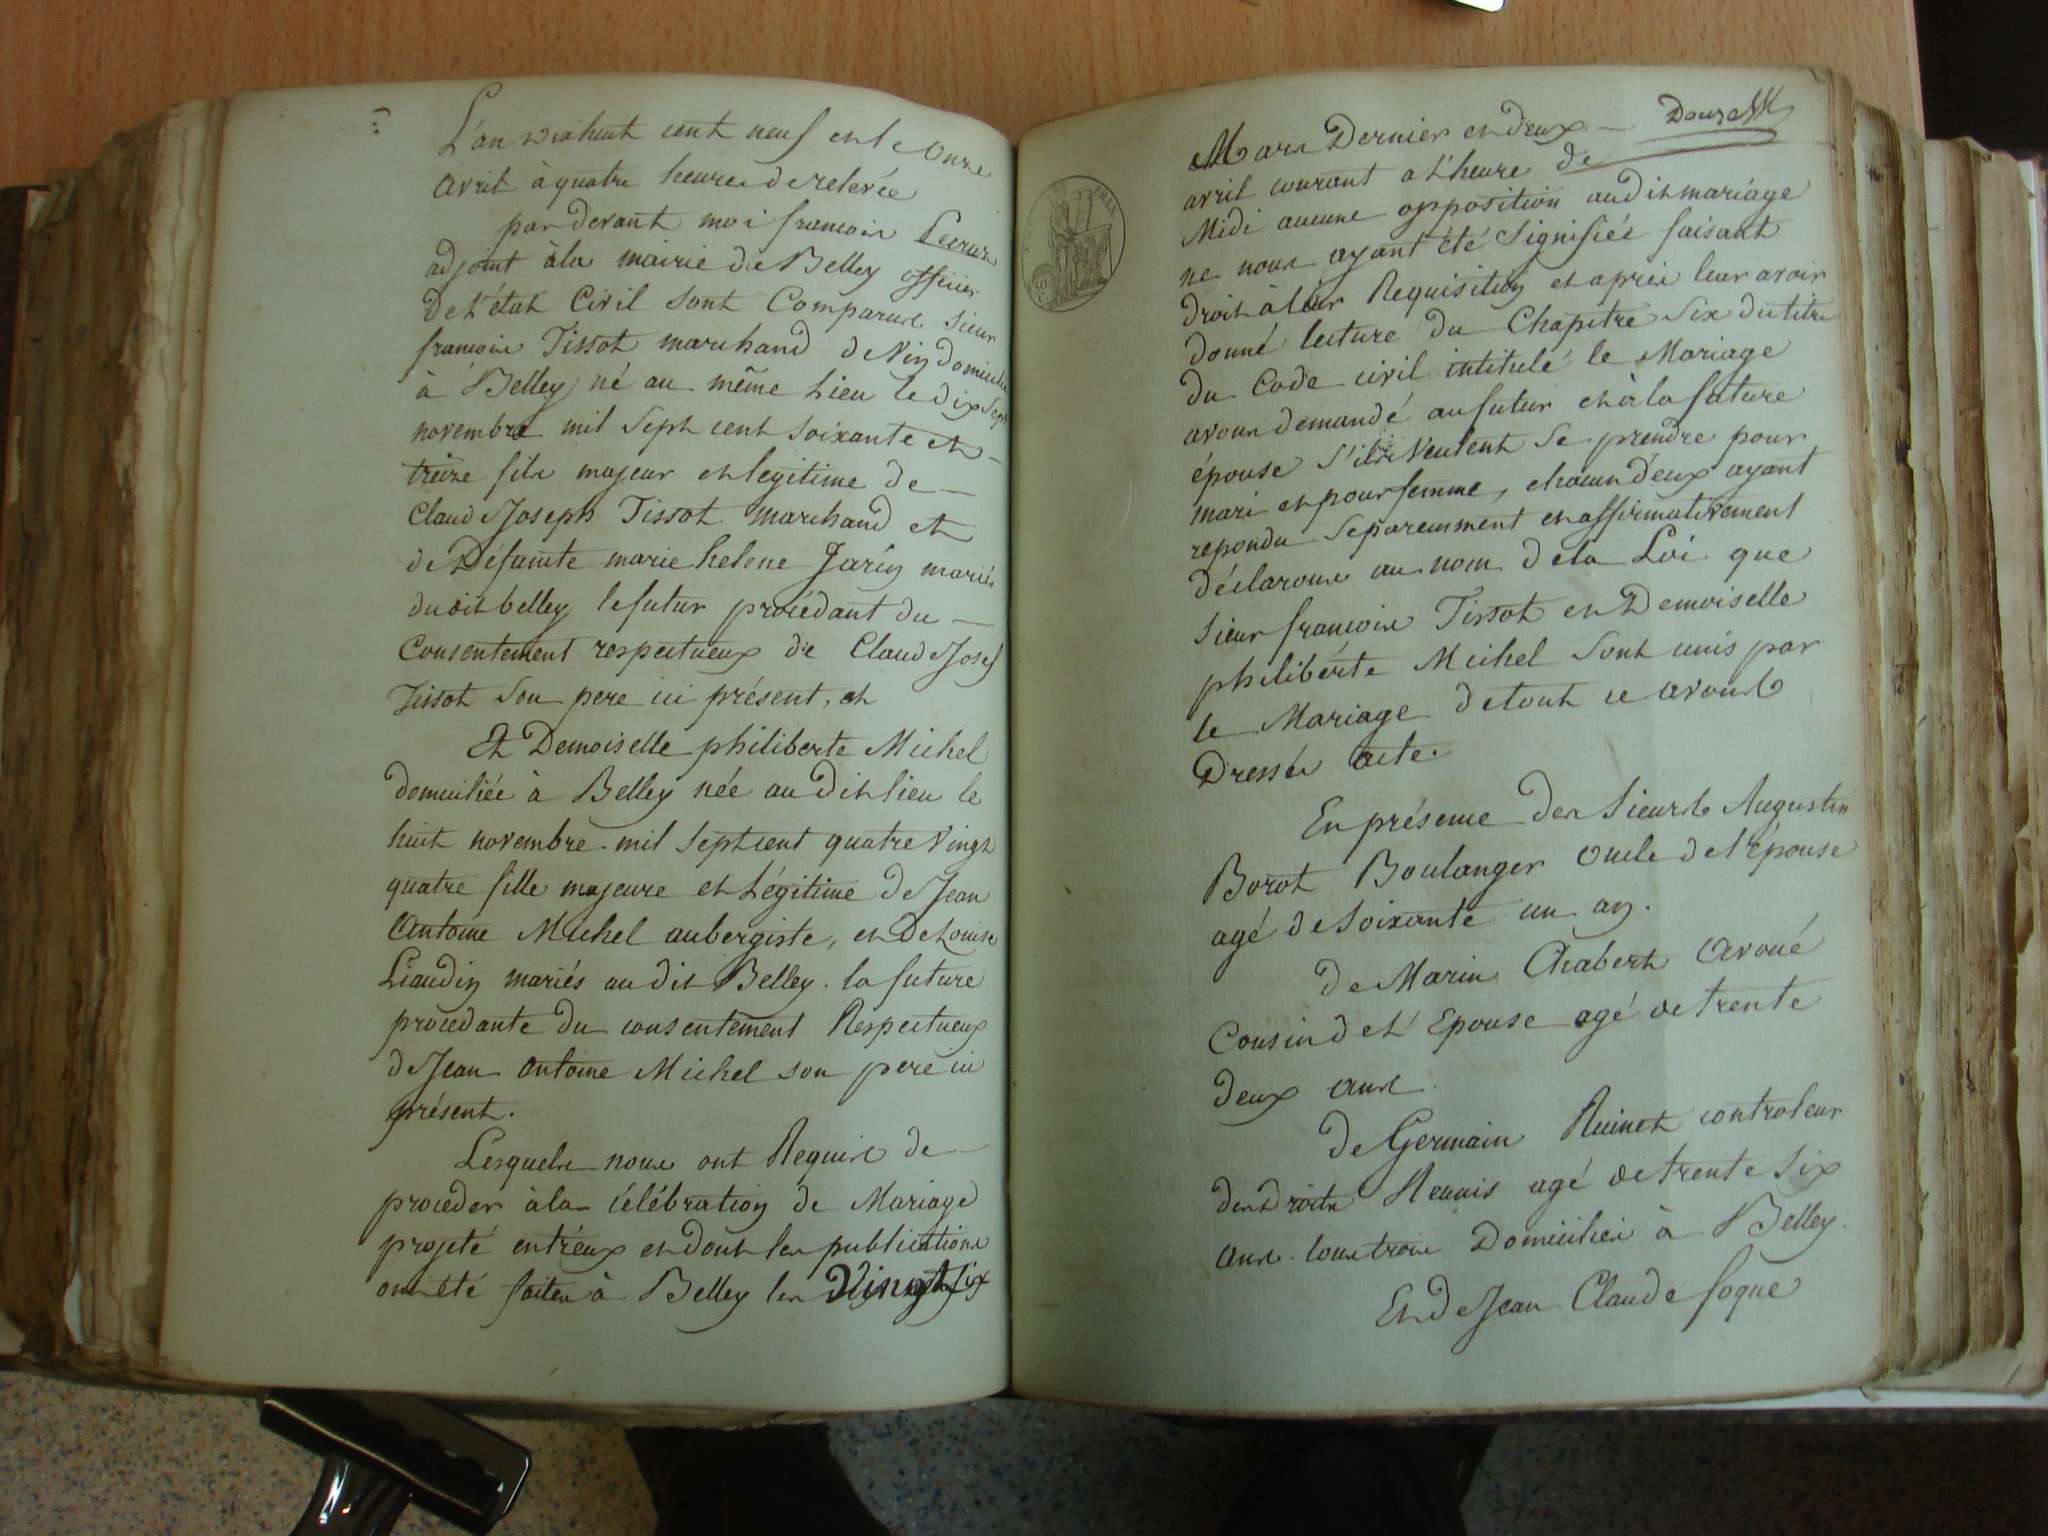 L'an dixhuit cent neuf et le onze
avril à quatre heures de relevée
par devant moi françois
adjoint à la mairie de Belley officier
de l'état Civil sont Comparus sieur
françois Tissot marchand de Vin domicilié
à Belley né au même Lieu le dix Sept
novembre mil Sept cent soixante et
treize fils majeur et legitime de
Claud Joseph Tissot marchand et
de Défunte marie helene Jarin mariés
dudit belley le futur procédant du
Consentement respectueux de Claud Josef
Tissot son pere ici présent, et
Et Demoiselle philiberte Michel
domiciliée à Belley née au dit lieu le
huit novembre mil Septcent quatre Vingt
quatre fille majeure et Légitime de Jean
Antoine Michel aubergiste, et de Louise
Liaudin mariés au dit Belley. la future
procedante du consentement Respectueux
de Jean Antoine Michel son pere ici
présent.
Lesquels nous ont Requis de
proceder à la Célébration de Mariage
projeté entréux et dont les publications
ont été faites à Belley les Vingt Six
Mars Dernier et deux
avril courant a l'heure de
Midi aucune opposition audit mariage
ne nous ayant été Signifiée faisant
droit à leur Requisition et aprés leur avoir
donné lecture du Chapitre Six du titre
du Code civil intitulé le Mariage
avons demandé au futur et à la future
épouse s'ils Veulent Se prendre pour
mari et pour femme, chacun d'eux ayant
repondu Separemment et affirmativement
déclarons au nom de la Loi que
Sieur françois Tissot et Demoiselle
philiberte Michel Sont unis par
le Mariage de tout ce avons
Dressés acte.
En présence des Sieurs Augustin
Borot Boulanger oncle de l'épouse
agé de Soixante un an.
de Marin Chabert avoué
Cousin de l'Epouse agé de trente
deux ans.
de Germain Ruinet controleur
des droits Reunis agé de trente Six
ans. tous trois Domiciliés à Belley.
Et de Jean Claude foque